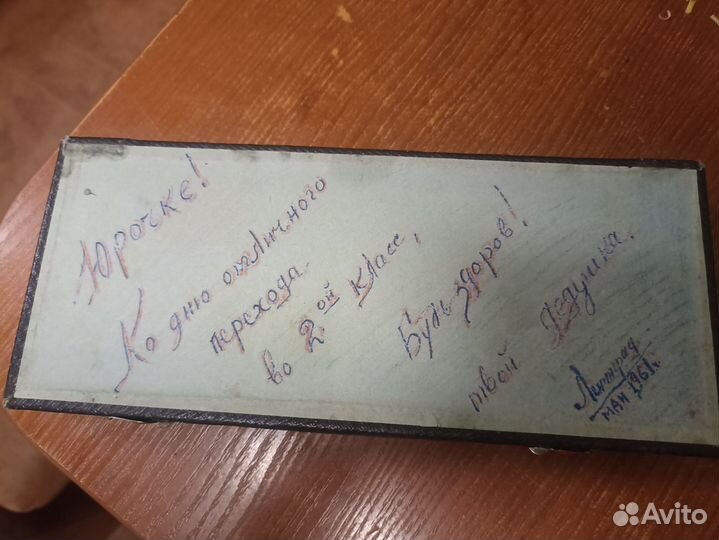 Юрочке!
Ко дню отличного
перехода
во 2ой класс,
Будь здоров!
твой Дедушка.
Ленинград
МАЙ 1961г.
Avito